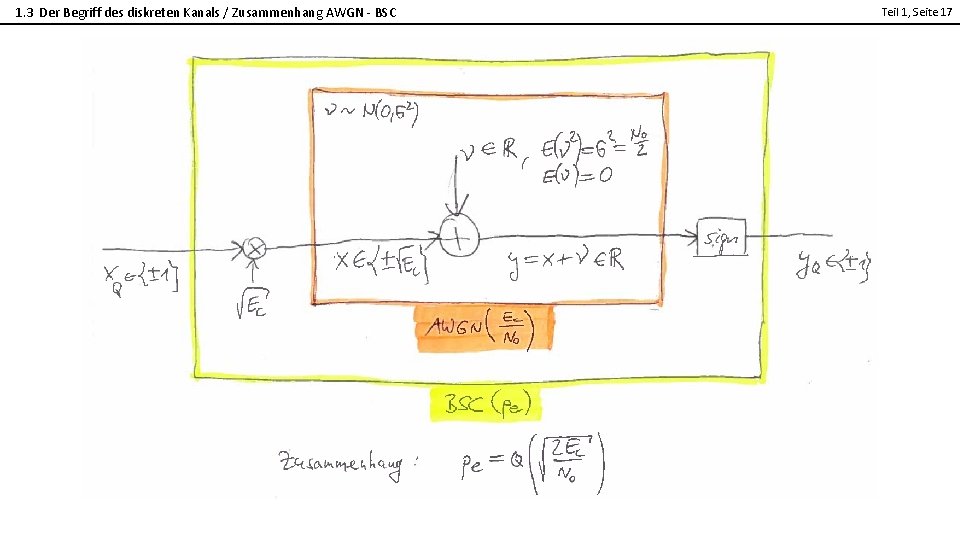 1.3 Der Begriff des diskreten Kanals / Zusammenhang AWGN - BSC
Teil 1, Seite 17
ν ~ N(0,σ²)
ν ∈ ℝ, E(ν²)=σ²=N₀/2
E(ν)=0
x_Q ∈ {±1}
×
√E_c
x ∈ {±√E_c}
+
y = x + ν ∈ ℝ
sign
y_Q ∈ {±1}
AWGN(E_c/N₀)
BSC(p_e)
Zusammenhang: p_e = Q(√(2E_c/N₀))